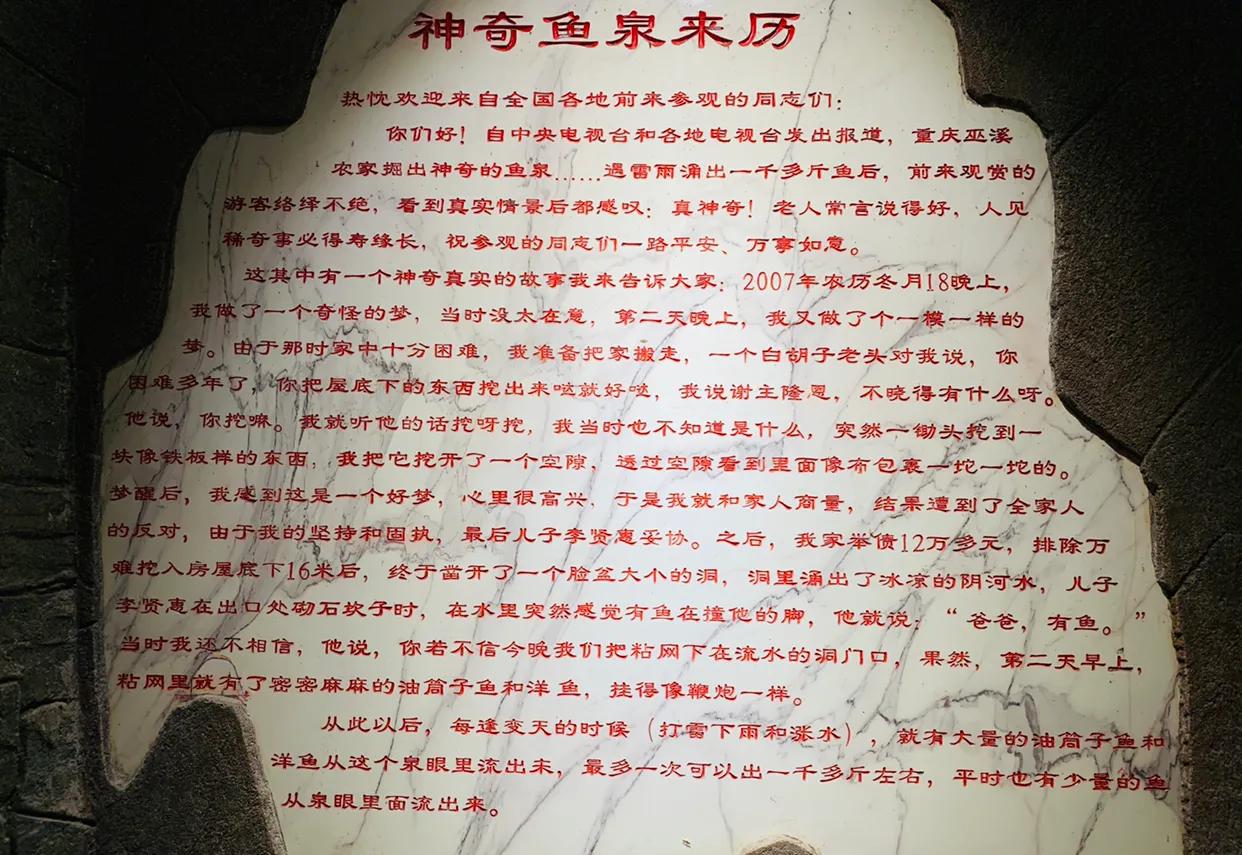 神奇鱼泉来历
热忱欢迎来自全国各地前来参观的同志们：
你们好！自中央电视台和各地电视台发出报道，重庆巫溪
农家掘出神奇的鱼泉……遇雷雨涌出一千多斤鱼后，前来观赏的
游客络绎不绝，看到真实情景后都感叹：真神奇！老人常言说得好，人见
稀奇事必得寿缘长，祝参观的同志们一路平安、万事如意。
这其中有一个神奇真实的故事我来告诉大家：2007年农历冬月18晚上，
我做了一个奇怪的梦，当时没太在意，第二天晚上，我又做了个一模一样的
梦。由于那时家中十分困难，我准备把家搬走，一个白胡子老头对我说，你
困难多年了，你把屋底下的东西挖出来哒就好哒，我说谢主隆恩，不晓得有什么呀。
他说，你挖嘛。我就听他的话挖呀挖，我当时也不知道是什么，突然一锄头挖到一
块像铁板样的东西，我把它挖开了一个空隙，透过空隙看到里面像布包裹一坨一坨的。
梦醒后，我感到这是一个好梦，心里很高兴，于是我就和家人商量，结果遭到了全家人
的反对，由于我的坚持和固执，最后儿子李贤惠妥协。之后，我家举债12万多元，排除万
难挖入房屋底下16米后，终于凿开了一个脸盆大小的洞，洞里涌出了冰凉的阴河水，儿子
李贤惠在出口处砌石坎子时，在水里突然感觉有鱼在撞他的脚，他就说：“爸爸，有鱼。”
当时我还不相信，他说，你若不信今晚我们把粘网下在流水的洞门口，果然，第二天早上，
粘网里就有了密密麻麻的油筒子鱼和洋鱼，挂得像鞭炮一样。
从此以后，每逢变天的时候（打雷下雨和涨水），就有大量的油筒子鱼和
洋鱼从这个泉眼里流出来，最多一次可以出一千多斤左右，平时也有少量的鱼
从泉眼里面流出来。